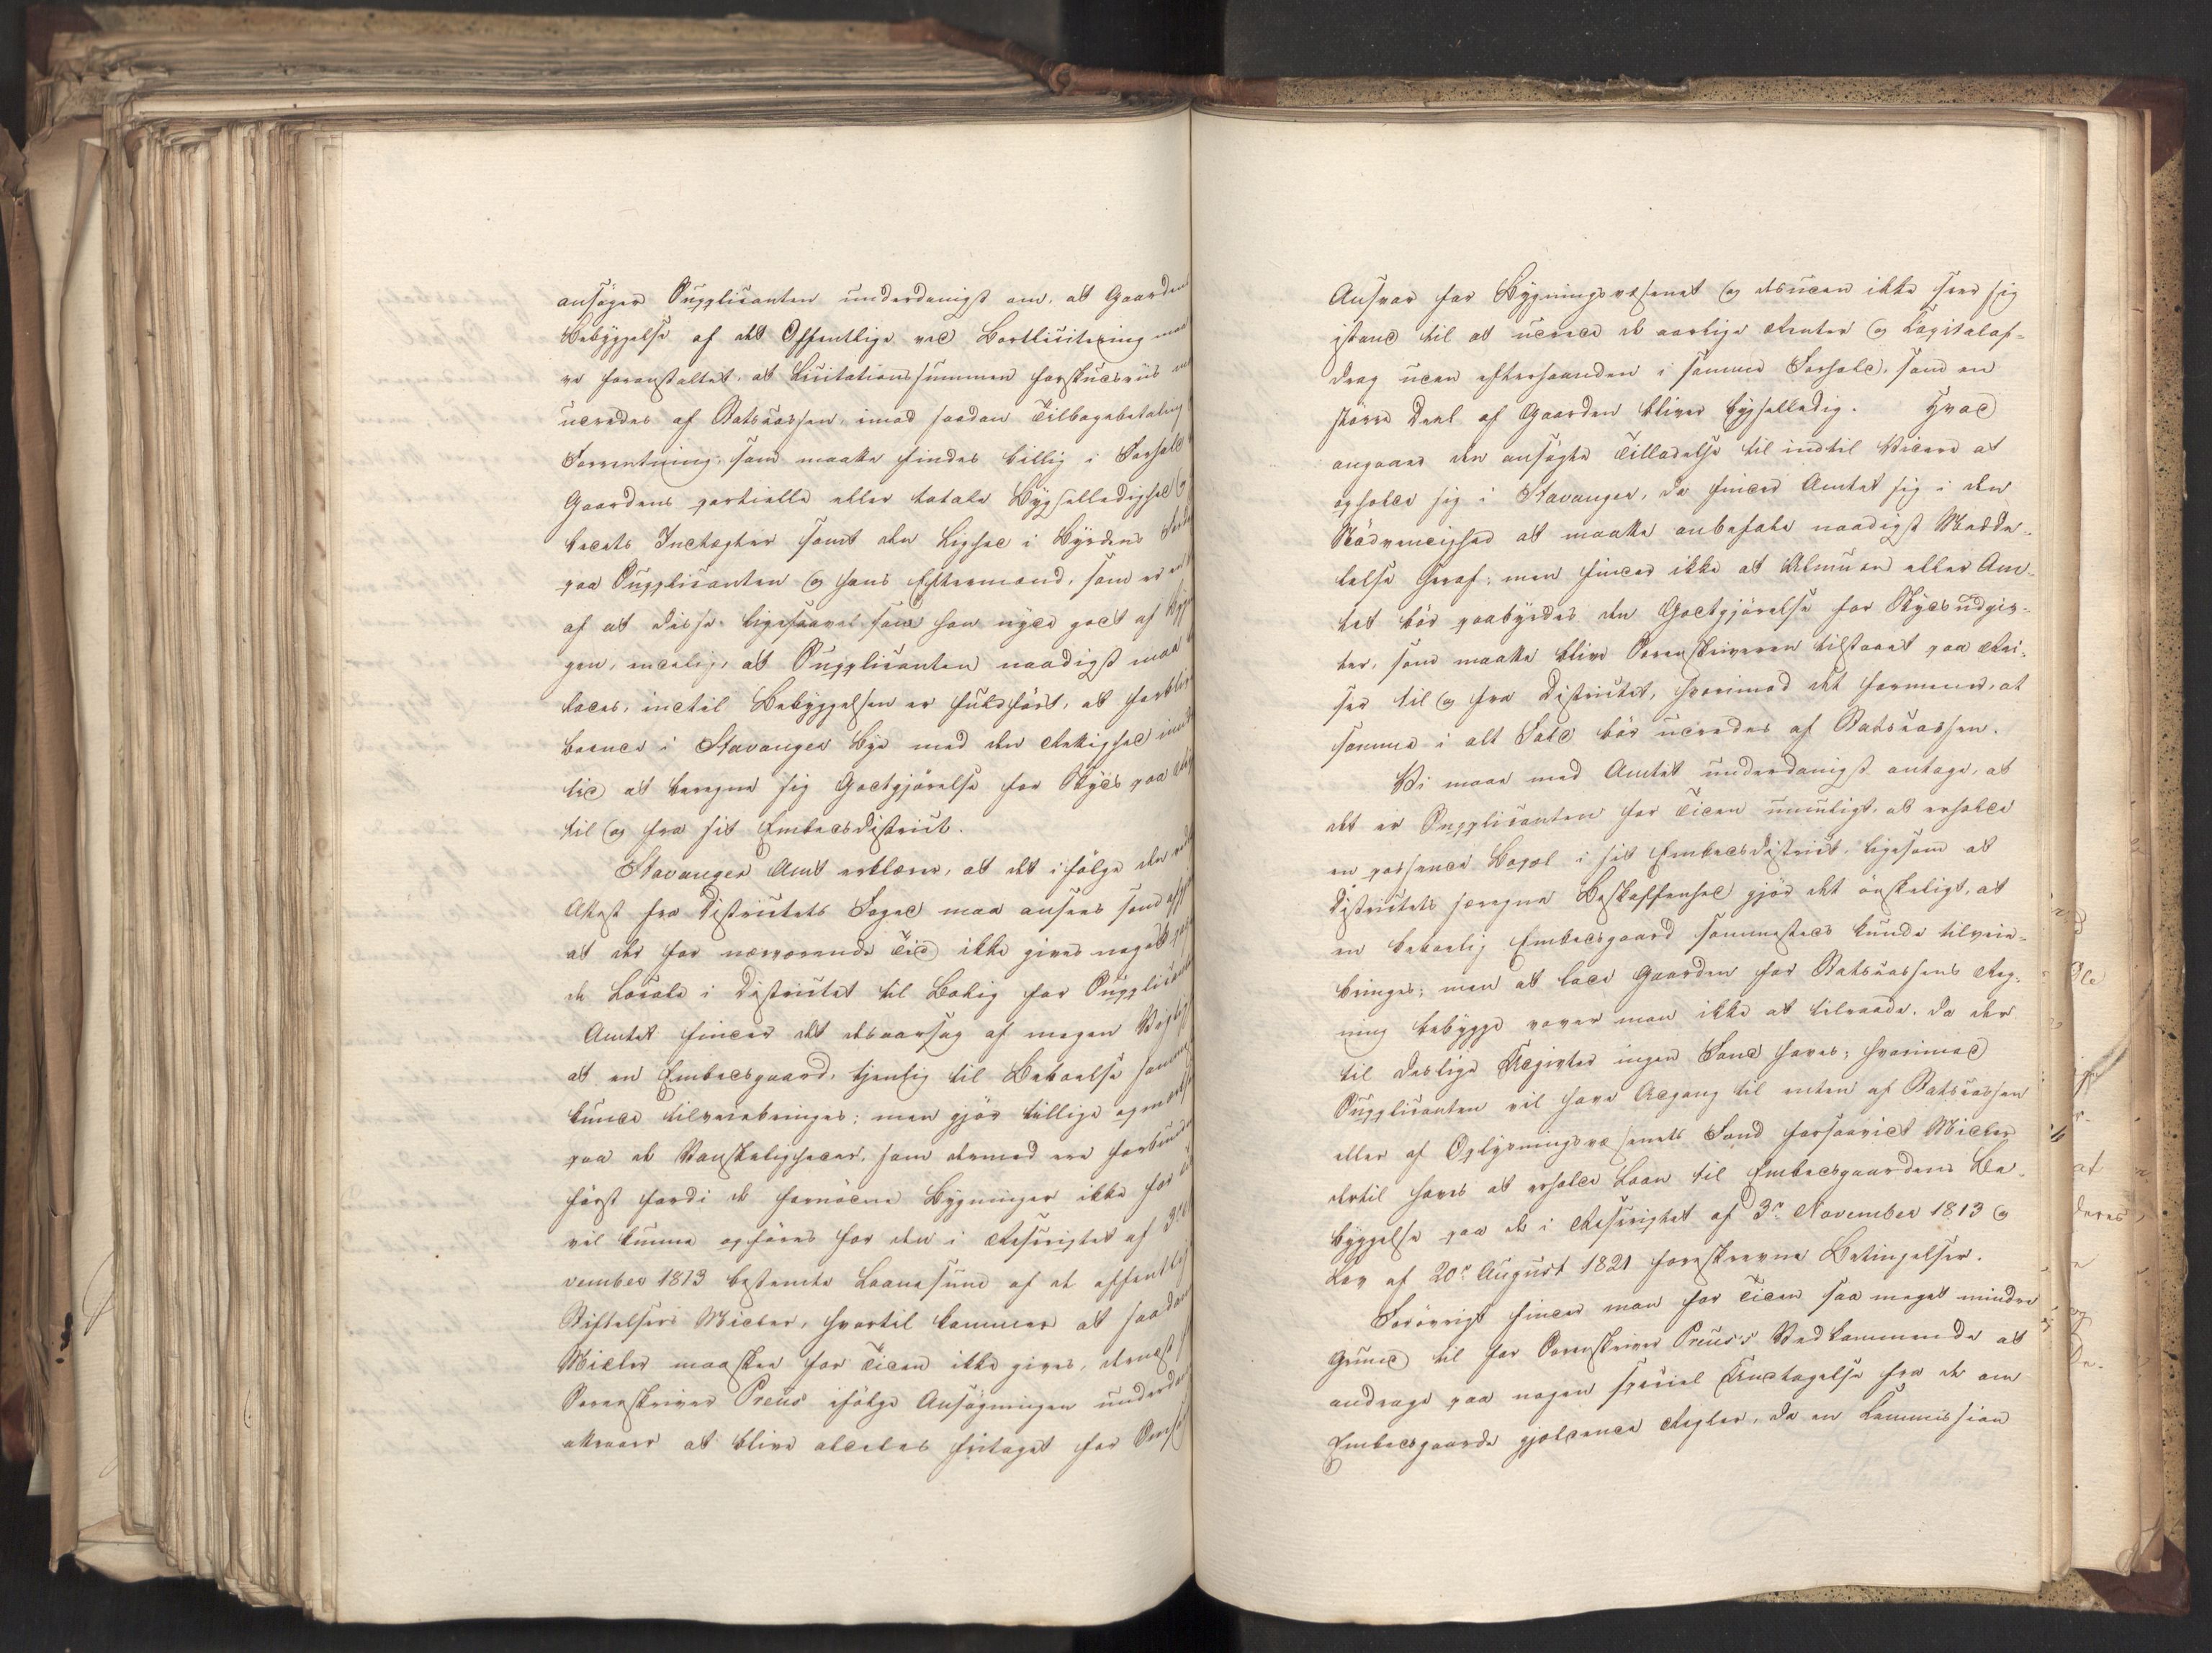 ansøger Supplicanten underdanigst om, at Gaardens
Bebyggelse af det Offentlige ved Bortlicitering maa
foranstaltet, at Licitationssummen forskudsviis
udredes af Statscassen, imod saadan Tilbagebetaling
Forrentning, som maatte findes billig i Forhold
Gaardens partielle eller totale Bygselledighed og
Indtægter samt den Lighed i Byrdens
paa Supplicanten og hans Eftermand, som er
af at disse ligesaavel som han nyde godt af
gen, endelig, at Supplicanten naadigst maa
lades, indtil Bebyggelsen er fuldført, at forblive
boende i Stavanger Bye med den Rettighed
tid at beregne sig Godtgjørelse for Skyds paa
til og fra sit Embedsdistrict.
Stavanger Amt erklærer, at det ifølge den
Attest fra Districtets Foged maa ansees som
at der for nærværende Tid ikke gives noget
de Locale i Districtet til Bolig for Supplicanten
Amtet finder det desaarsag af megen Vigtighed
at en Embedsgaard, tjenlig til Beboelse
kunde tilveiebringes; men gjør tillige opmærksom
paa de Vanskeligheder, som dermed ere forbundne
først fordi de fornødne Bygninger ikke for
vil kunne opføres for den i Rescriptet af 3die
vember 1813 bestemte Laanesum af de offentlige
Stiftelsers Midler, hvortil kommer at saadanne
Midler maaskee for Tiden ikke gives, dernæst
Sorenskriver Preus ifølge Ansøgningen underdanigst
attraaer at blive aldeles fritaget for
Ansvar for Bygningsvæsenet og desuden ikke seer sig
istand til at udrede de aarlige Renter og Capitalaf-
drag uden efterhaanden i samme Forhold, som en
større Deel af Gaarden bliver bygselledig. Hvad
angaaer den ansøgte Tilladelse til indtil Videre at
opholde sig i Stavanger, da finder Amtet sig i den
Nødvendighed at maatte anbefale naadigst Medde-
lelse heraf; men finder ikke at Almuen eller Am-
tet bør paabyrdes den Godtgjørelse for Skydsudgif-
ter, som maatte blive Sorenskriveren tilstaaet paa Rei-
ser til og fra Districtet, hvorimod det formener, at
samme i alt Fald bør udredes af Statscassen.
Vi maae med Amtet underdanigst antage, at
det er Supplicanten for Tiden umuligt, at erholde
en passende Bopæl i sit Embedsdistrict, ligesom at
Districtets særegne Beskaffenhed gjør det ønskeligt, at
en beboelig Embedsgaard sammesteds kunde tilveie-
bringes; men at lade Gaarden for Statscassens Reg-
ning bebygge vover man ikke at tilraade, da der
til deslige Udgivter ingen Fond haves; hvorimod
Supplicanten vil have Adgang til enten af Statscassen
eller af Oplysningsvæsenets Fond forsaavidt Midler
dertil haves at erholde Laan til Embedsgaardens Be-
byggelse paa de i Rescriptet af 3de November 1813 og
Lov af 20de August 1821 foreskrevne Betingelser.
Forøvrigt finder man for Tiden saa meget mindre
Grund til for Sorenskriver Preus's Vedkommende at
andrage paa nogen speciel Undtagelse fra de om
Embedsgaarde gjældende Regler, da en Commission